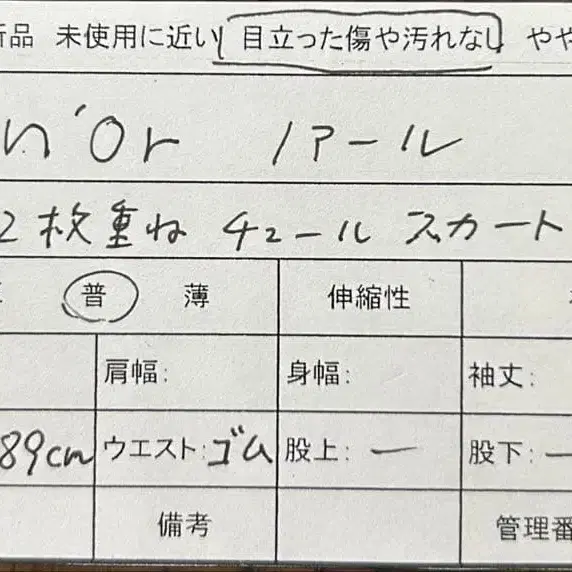 新品 未使用に近い 目立った傷や汚れなし やや
n'Or ノアール
2枚重ね チュールスカート
普 薄 伸縮性
肩幅: 身幅: 袖丈:
89cm ウエスト:ゴム 股上: ー 股下: ー
備考 管理番